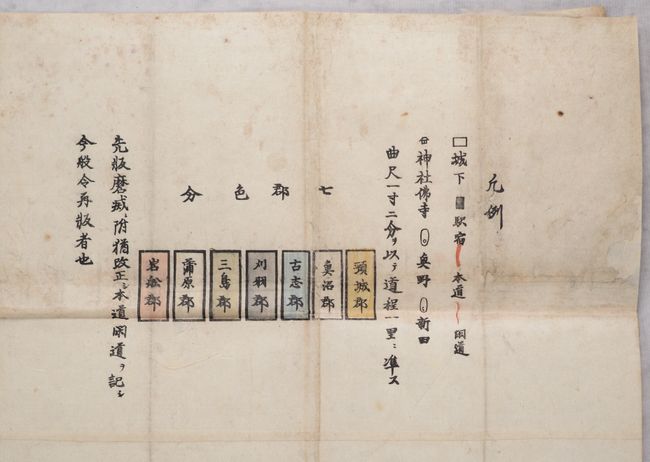 凡例
城下 駅宿 本道 間道
神社佛寺 奥野 新田
曲尺一寸二分ヲ以テ道程一里ニ準ス
七郡色分
頸城郡
魚沼郡
古志郡
刈羽郡
三島郡
蒲原郡
岩舩郡
先版磨滅ニ附猶改正シ本道間道ヲ記シ
今般令再版者也